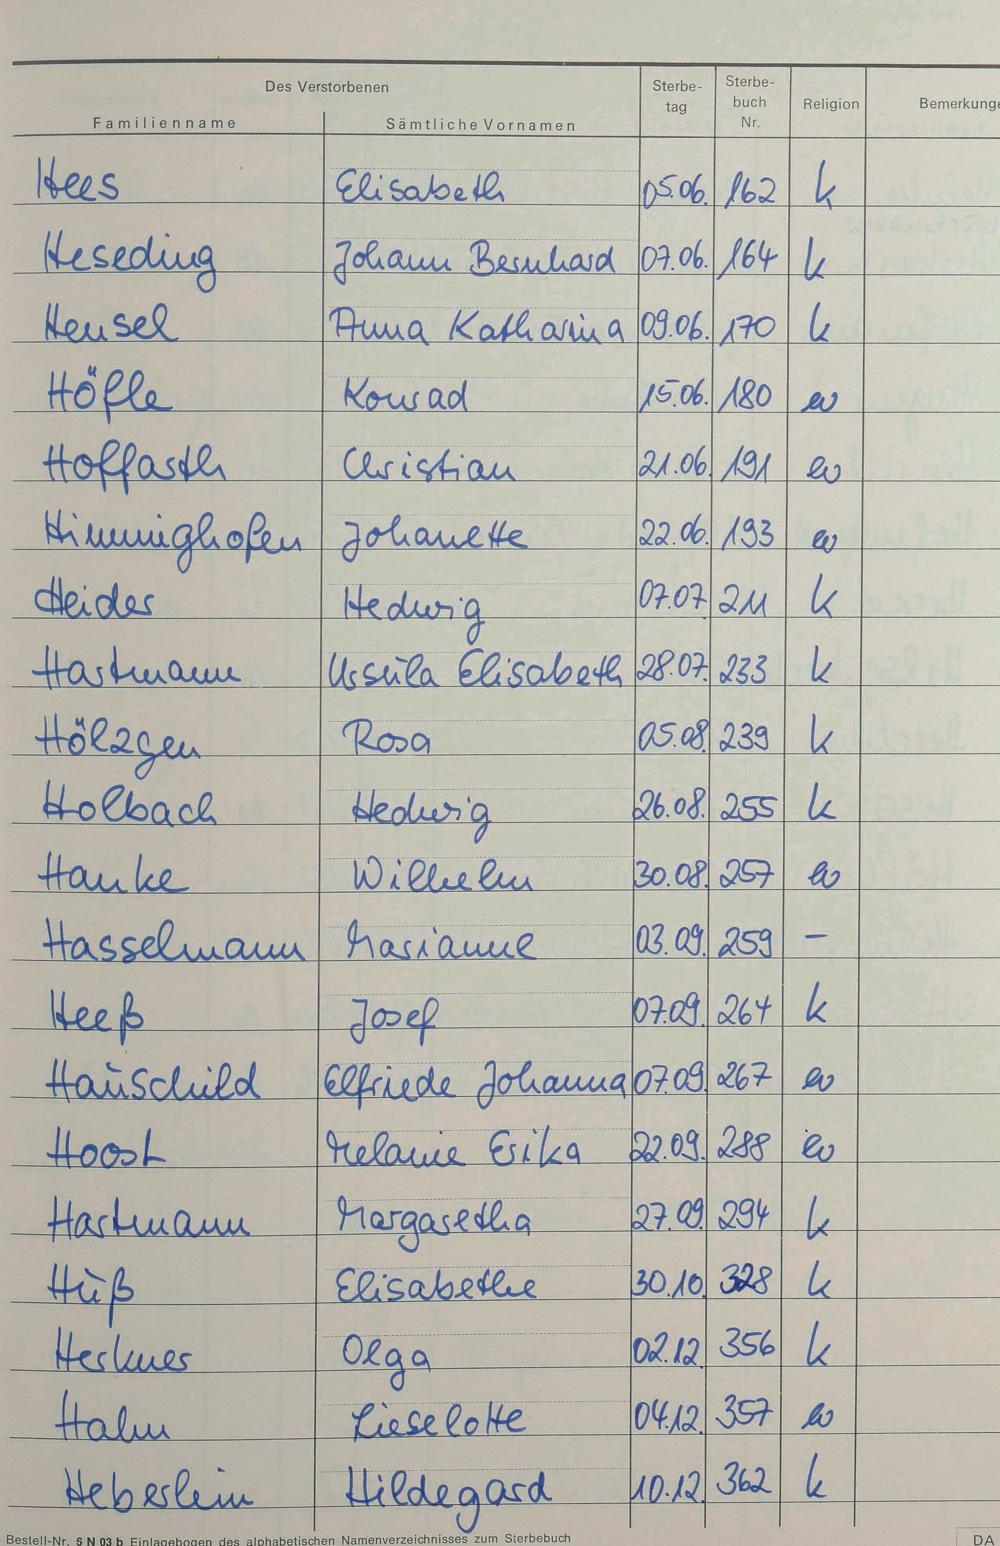 Des Verstorbenen
Familienname Sämtliche Vornamen Sterbe-tag Sterbe-buch Nr. Religion Bemerkunge
Hees Elisabeth 05.06. 162 k
Heseding Johann Bernhard 07.06. 164 k
Hensel Anna Katharina 09.06. 170 k
Höfle Konrad 15.06. 180 ev
Hoffarth Christian 21.06. 191 ev
Himmighofen Johanette 22.06. 193 ev
Heider Hedwig 07.07. 211 k
Hartmann Ursula Elisabeth 28.07. 233 k
Hölzgen Rosa 05.08. 239 k
Holbach Hedwig 26.08. 255 k
Hanke Wilhelm 30.08. 257 ev
Hasselmann Marianne 03.09. 259 –
Heeß Josef 07.09. 264 k
Hauschild Elfriede Johanna 07.09. 267 ev
Hoost Melanie Erika 22.09. 288 ev
Hartmann Margaretha 27.09. 294 k
Hüß Elisabethe 30.10. 328 k
Herkner Olga 02.12. 356 k
Hahn Lieselotte 04.12. 357 ev
Heberlein Hildegard 10.12. 362 k
Bestell-Nr. 5 N 03 b Einlagebogen des alphabetischen Namenverzeichnisses zum Sterbebuch DA